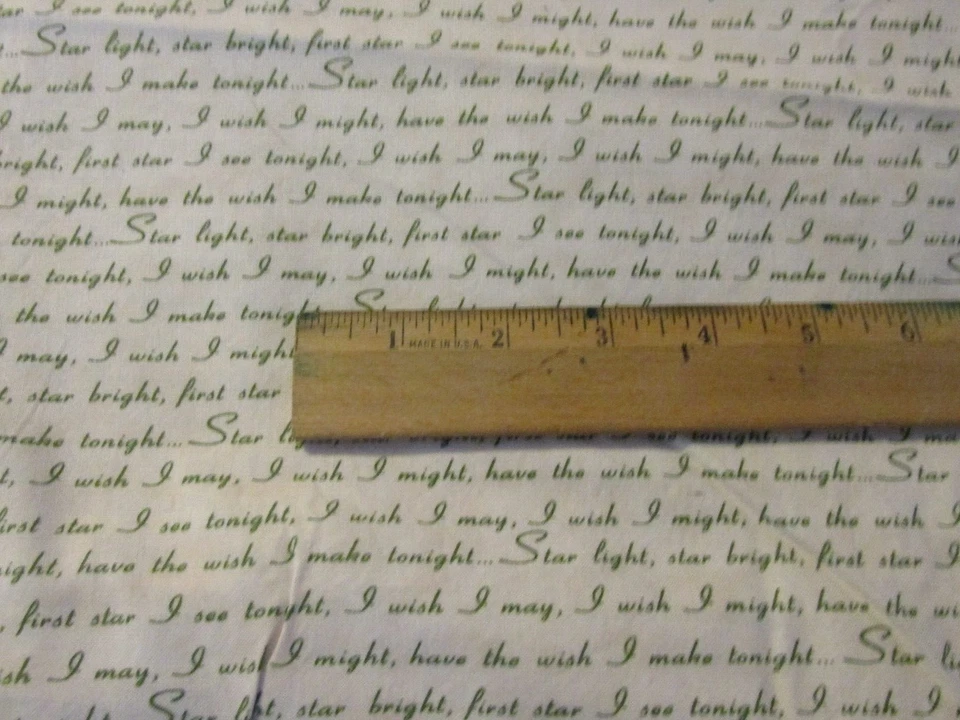 I see tonight, I wish I may, I wish I might, have the wish I make tonight...
...Star light, star bright, first star I see tonight, I wish I may, I wish I might
the wish I make tonight...Star light, star bright, first star I see tonight, I wish
I wish I may, I wish I might, have the wish I make tonight...Star light, star
bright, first star I see tonight, I wish I may, I wish I might, have the wish I
I might, have the wish I make tonight...Star light, star bright, first star I see
tonight...Star light, star bright, first star I see tonight, I wish I may, I wish
see tonight, I wish I may, I wish I might, have the wish I make tonight...S
the wish I make tonight
1 2 3 4 5 6
MADE IN U.S.A.
I may, I wish I might
star bright, first star
make tonight...Star
I wish I may, I wish I might, have the wish I make tonight...Star
first star I see tonight, I wish I may, I wish I might, have the wish I
have the wish I make tonight...Star light, star bright, first star I
, first star I see tonight, I wish I may, I wish I might, have the
I may, I wish I might, have the wish I make tonight...Star
Star light, star bright, first star I see tonight, I wish I